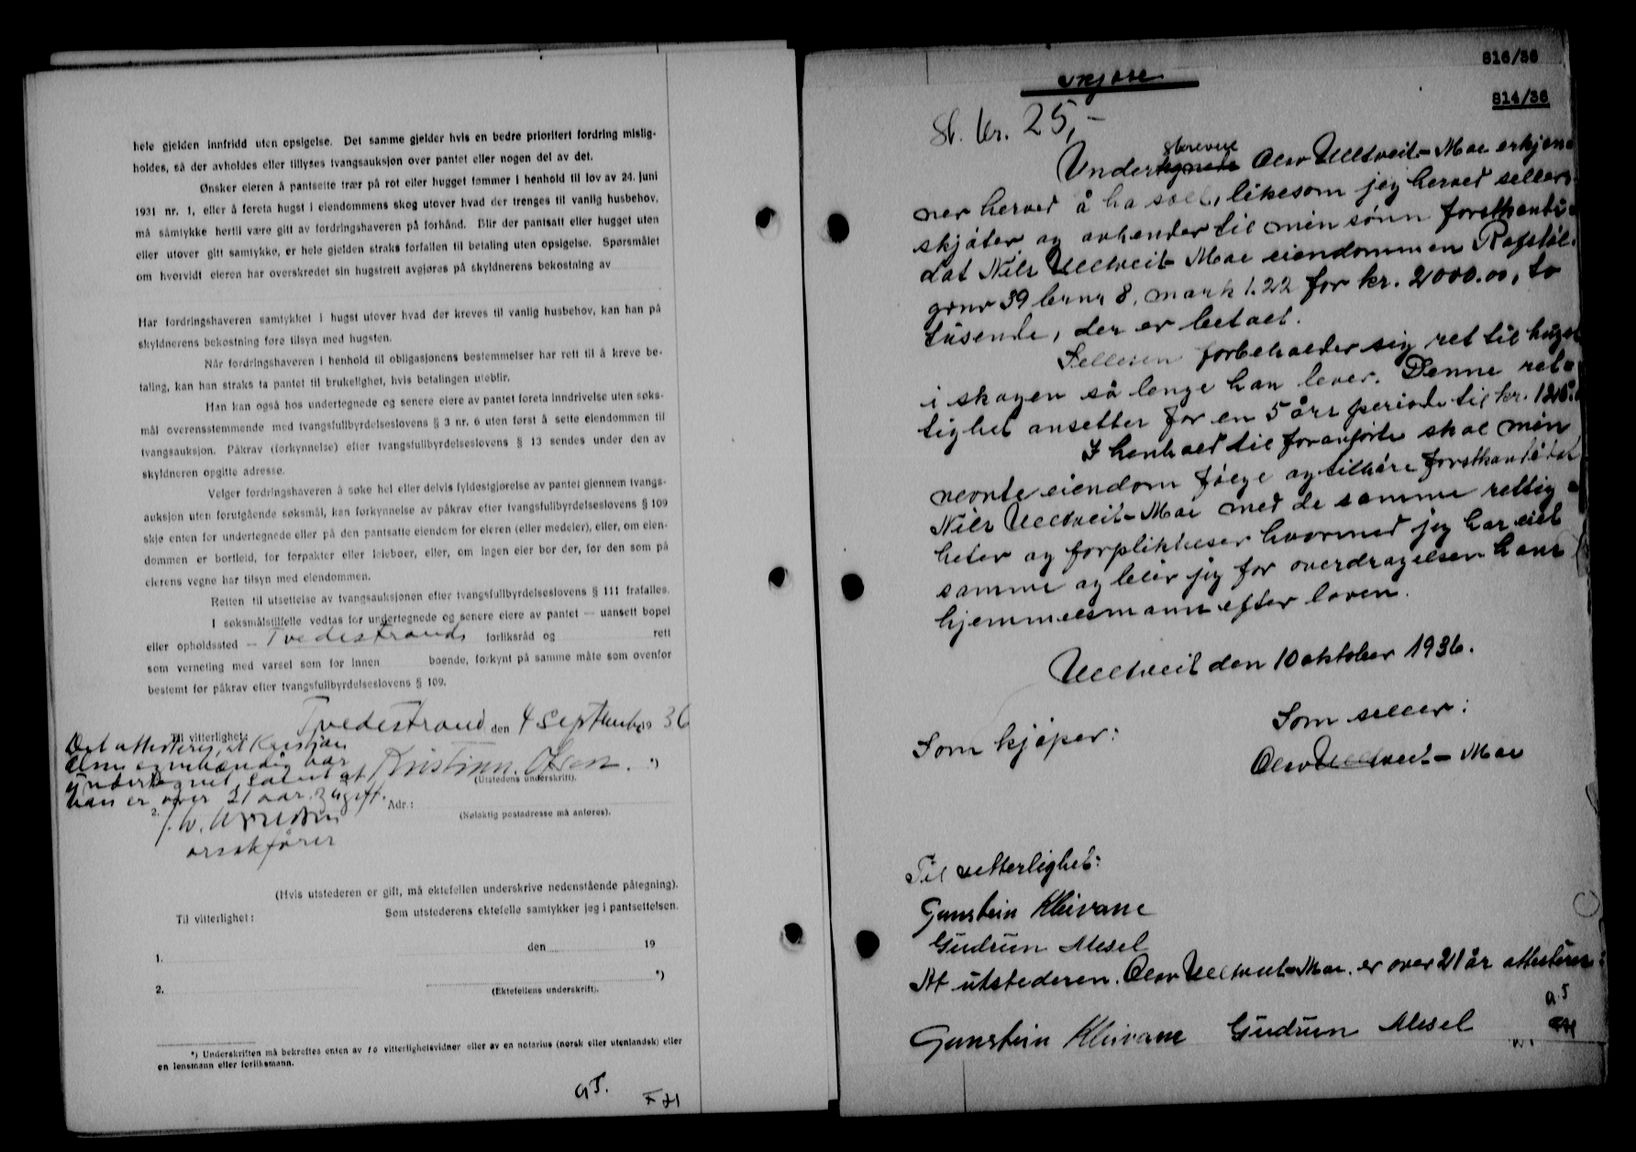 hele gjelden innfridd uten opsigelse. Det samme gjelder hvis en bedre prioritert fordring mislig-
holdes, så der avholdes eller tillyses tvangsauksjon over pantet eller nogen del av det.
Ønsker eieren å pantsette trær på rot eller hugget tømmer i henhold til lov av 24. juni
1931 nr. 1, eller å foreta hugst i eiendommens skog utover hvad der trenges til vanlig husbehov,
må samtykke hertil være gitt av fordringshaveren på forhånd. Blir der pantsatt eller hugget uten
eller utover gitt samtykke, er hele gjelden straks forfallen til betaling uten opsigelse. Spørsmålet
om hvorvidt eieren har overskredet sin hugstrett avgjøres på skyldnerens bekostning av
Har fordringshaveren samtykket i hugst utover hvad der kreves til vanlig husbehov, kan han på
skyldnerens bekostning føre tilsyn med hugsten.
Når fordringshaveren i henhold til obligasjonens bestemmelser har rett til å kreve be-
taling, kan han straks ta pantet til brukelighet, hvis betalingen uteblir.
Han kan også hos undertegnede og senere eiere av pantet foreta inndrivelse uten søks-
mål overensstemmende med tvangsfullbyrdelseslovens § 3 nr. 6 uten først å sette eiendommen til
tvangsauksjon. Påkrav (forkynnelse) efter tvangsfullbyrdelseslovens § 13 sendes under den av
skyldneren opgitte adresse.
Velger fordringshaveren å søke hel eller delvis fyldestgjørelse av pantet gjennem tvangs-
auksjon uten forutgående søksmål, kan forkynnelse av påkrav efter tvangsfullbyrdelseslovens § 109
skje enten for undertegnede eller på den pantsatte eiendom for eieren (eller medeier), eller, om eien-
dommen er bortleid, for forpakter eller leieboer, eller, om ingen eier bor der, for den som på
eierens vegne har tilsyn med eiendommen.
Retten til utsettelse av tvangsauksjonen efter tvangsfullbyrdelseslovens § 111 frafalles.
I søksmålstilfelle vedtas for undertegnede og senere eiere av pantet — uansett bopel
eller opholdssted – Tvedestrands forliksråd og rett
som verneting med varsel som for innen boende, forkynt på samme måte som ovenfor
bestemt for påkrav efter tvangsfullbyrdelseslovens § 109.
Tvedestrand den 4 September 19 36
Til vitterlighet:
Det attesteres, at Kristian
Olsen egenhændig har
undertegnet, samt at
han er over 21 aar.
Kristian. Olsen. *)
(Utstedens underskrift).
2.
Adr.:
(Nøiaktig postadresse må anføres).
(Hvis utstederen er gift, må ektefellen underskrive nedenstående påtegning).
Til vitterlighet: Som utstederens ektefelle samtykker jeg i pantsettelsen.
1. den 19
2. *)
(Ektefellens underskrift).
*) Underskriften må bekreftes enten av to vitterlighetsvidner eller av en notarius (norsk eller utenlandsk) eller
en lensmann eller forliksmann.
816/36
814/36
Skjøte
St. kr. 25,-
skrevne
Undertegnede Olav Ulltveit-Moe erkjen-
ner herved å ha solt, likesom jeg herved seller
skjøter og avhender til min sønn forstkandi-
dat Nils Ulltveit-Moe eiendommen Rafstøl
grnr 39 brnr 8, mark 1.22 for kr. 2000.00, to
tusende, der er betalt.
Selleren forbeholder sig ret til hugst
i skogen så lenge han lever. Denne ret-
tighet ansettes for en 5 års periode til kr.
I henhold til foranførte skal min
nevnte eiendom følge og tilhøre forstkandidat
Nils Ulltveit-Moe med de samme rettig-
heter og forpliktelser hvormed jeg har eiet
samme og blir jeg for overdragelsen hans
hjemmelsmann efter loven.
Ulltveit den 10 oktober 1936.
Som kjøper:
Som seller:
Olav Ulltveit-Moe
Til vitterlighet:
Gunstein Kleivane
Gudrun Mesel
At utstederen. Olav Ulltveit-Moe. er over 21 år attesteres:
Gunstein Kleivane Gudrun Mesel